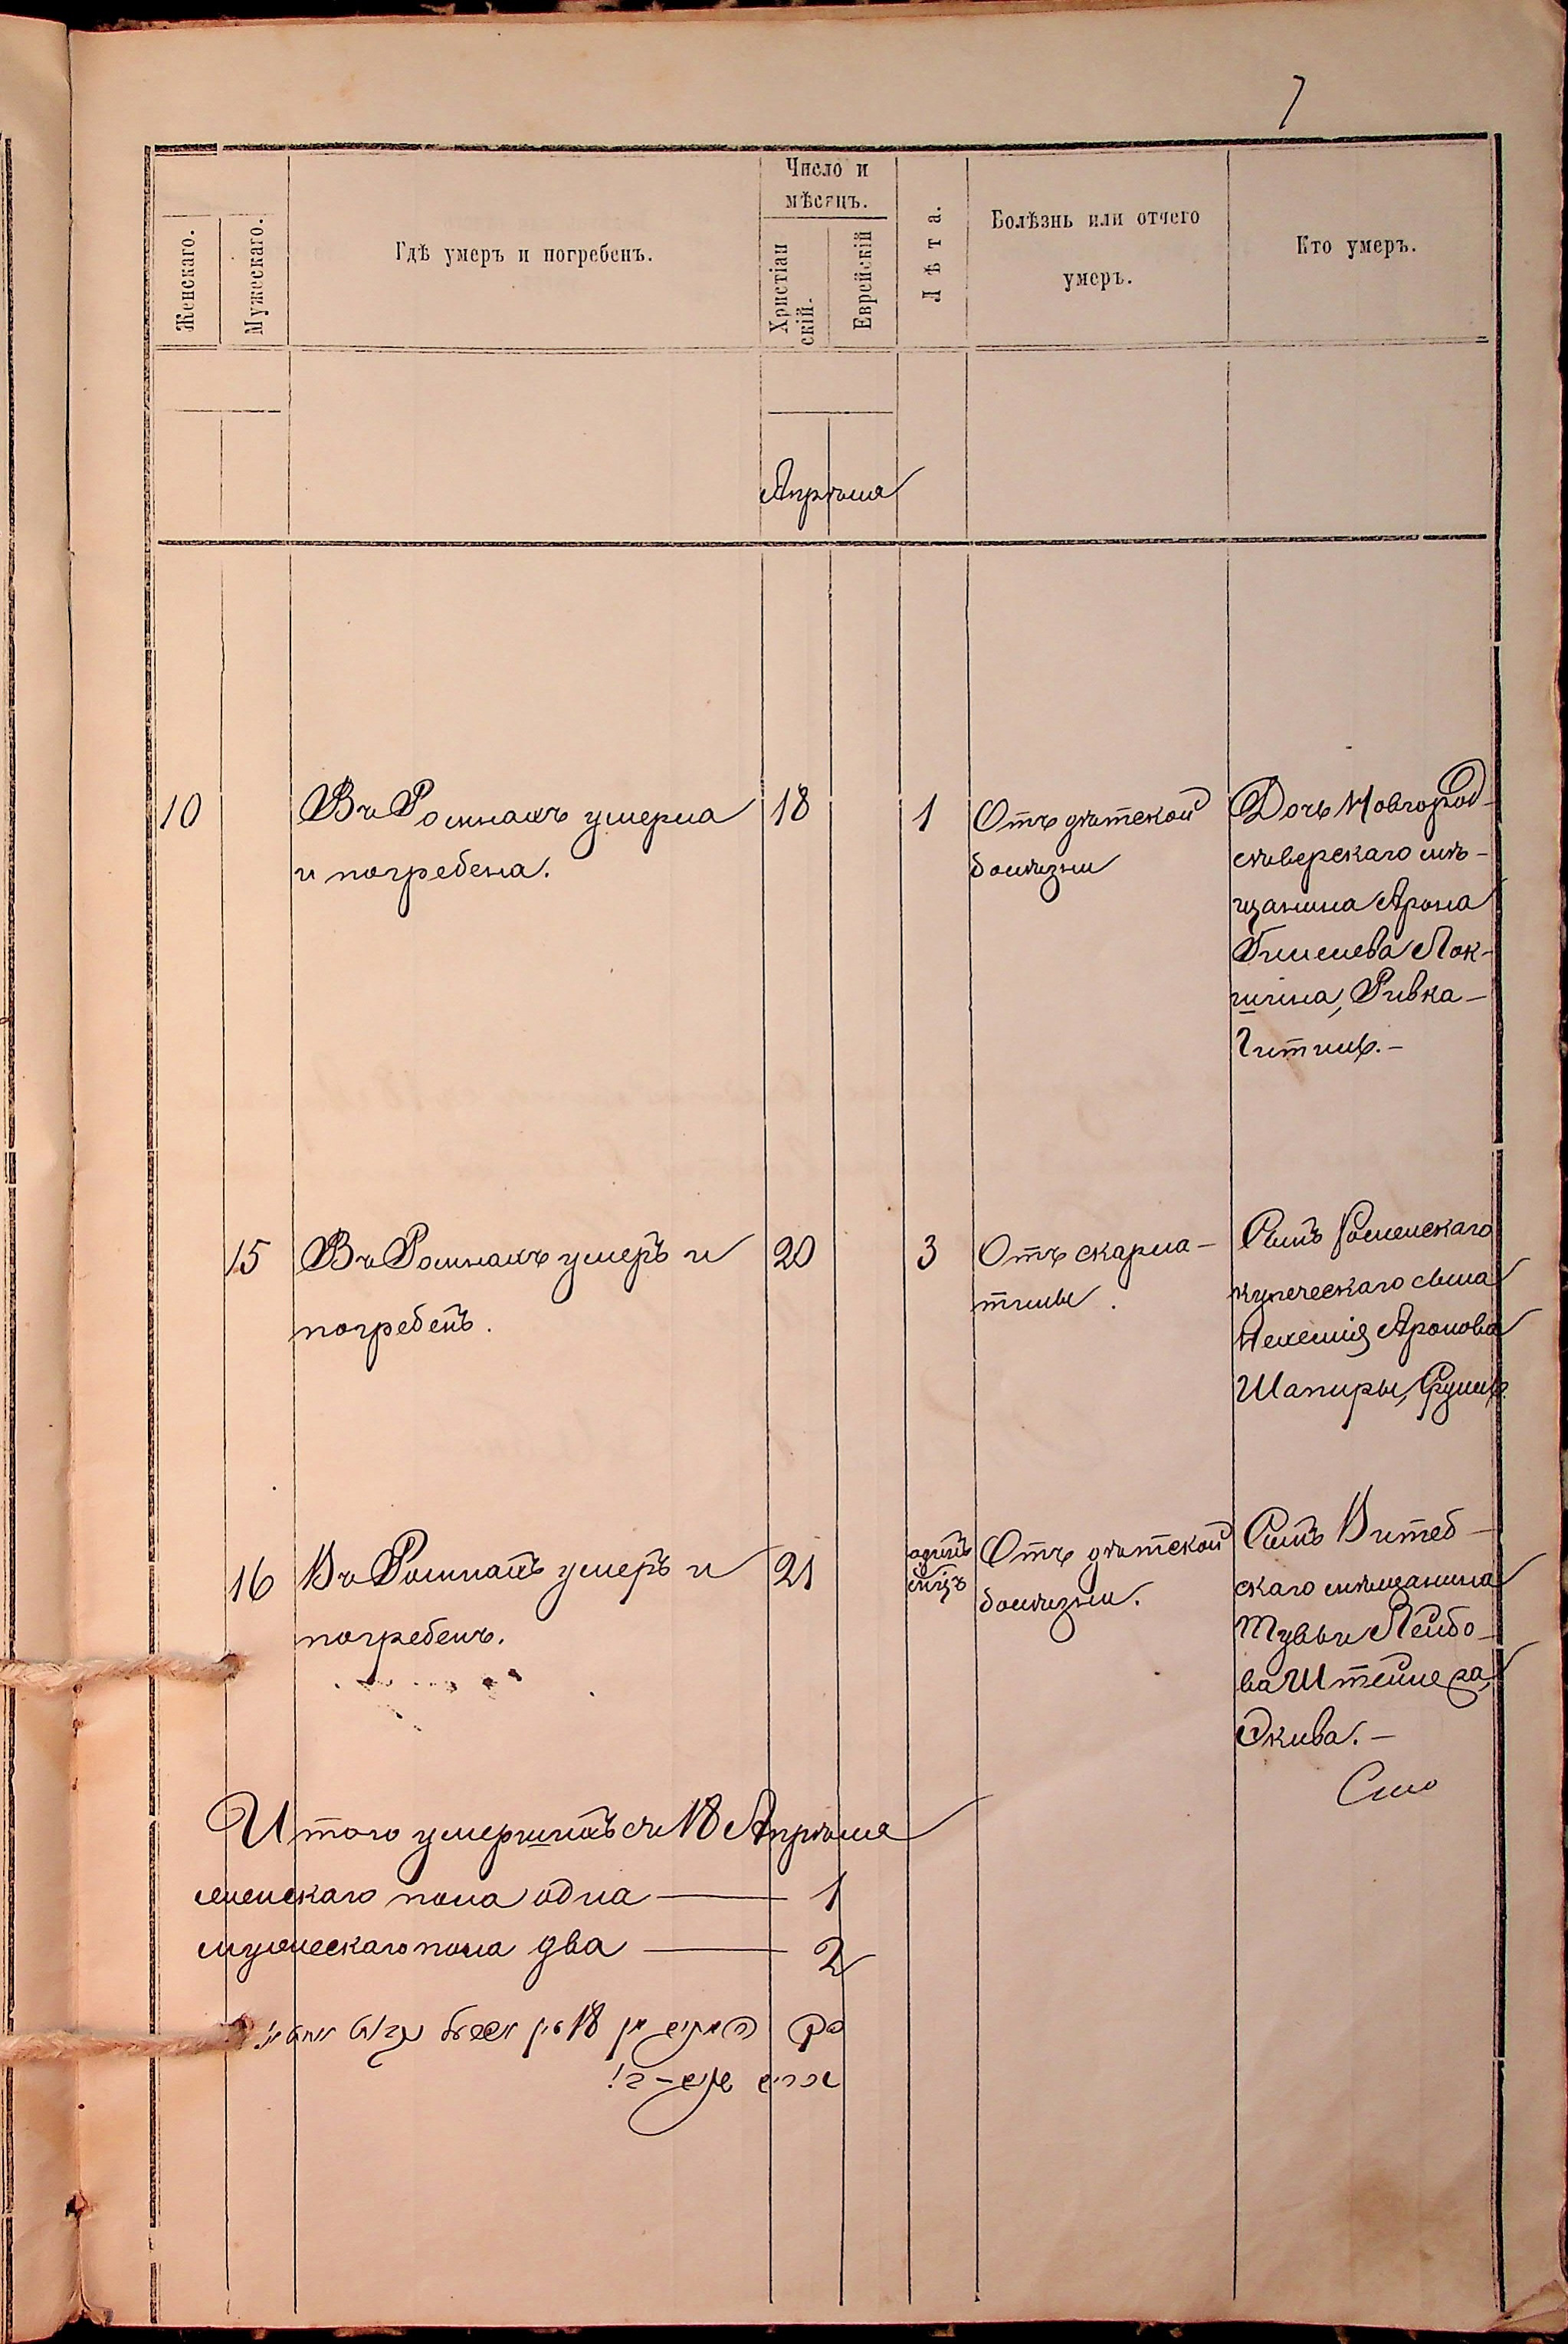 7
Число и
мѣсяцъ.
Женскаго.
Мужескаго.
Гдѣ умеръ и погребенъ.
Христіан
скій.
Еврейскій
Лѣта.
Болѣзнь или отчего
умеръ.
Кто умеръ.
Апрѣля
10
Въ Ромнахъ умерла
и погребена.
18
1
Отъ дѣтской
болѣзни
Дочь Новгород-
сѣверскаго мѣ-
щанина Арона
Гилелева Лок-
шина, Ривка-
Гитля.-
15
Въ Ромнахъ умеръ и
погребенъ.
20
3
Отъ скарла-
тины.
Сынъ Роменскаго
купеческаго сына
Нехемія Аронова
Шапиры,
16
Въ Ромнахъ умеръ и
погребенъ.
21
одинъ
мѣсяцъ
Отъ дѣтской
болѣзни.
Сынъ Витеб-
скаго мѣщанина
Тувьи Лейбо-
ва Штейнгарта,
Акива.-
Итого умершихъ съ 18 Апрѣля
женскаго пола одна — 1
мужескаго пола два — 2